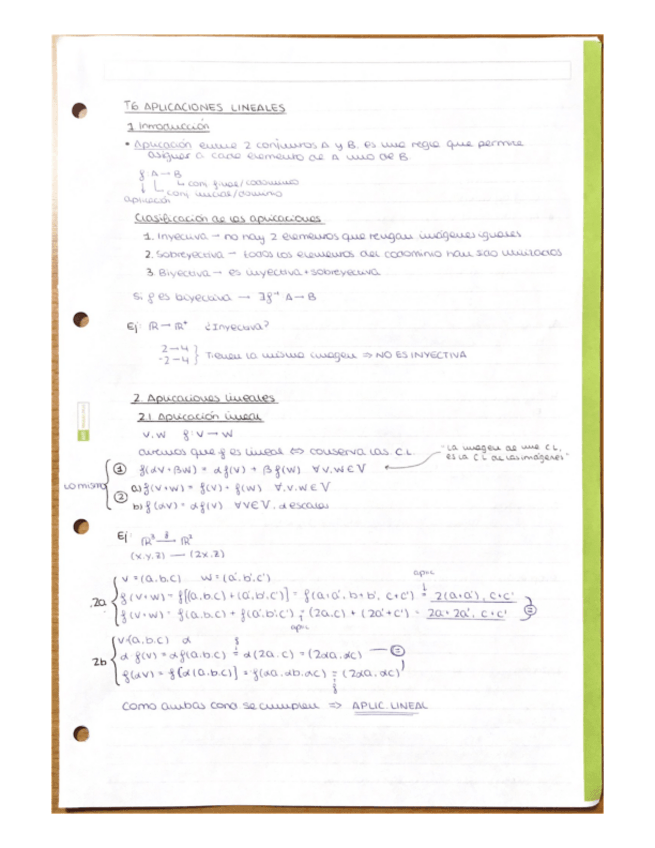 T6 APLICACIONES LINEALES
1 Introducción
• Aplicación entre 2 conjuntos A y B. es una regla que permite
asignar a cada elemento de A uno de B.
f: A → B
conj final/codominio
conj inicial/dominio
aplicación
Clasificación de las aplicaciones
1. Inyectiva → no hay 2 elementos que tengan imágenes iguales
2. Sobreyectiva → todos los elementos del codominio han sido utilizados
3. Biyectiva → es inyectiva + sobreyectiva
Si f es biyectiva → ∃f⁻¹ A→B
Ej: ℝ → ℝ⁺ ¿Inyectiva?
2→4
-2→4 } Tienen la misma imagen ⇒ NO ES INYECTIVA
2. Aplicaciones lineales
2.1 Aplicación lineal
V, W f: V → W
diremos que f es lineal ⇔ conserva las CL
"la imagen de una CL,
es la CL de las imágenes"
① f(αv+βw) = αf(v) + βf(w) ∀v,w∈V
lo mismo
② a) f(v+w) = f(v) + f(w) ∀,v,w∈V
b) f(αv) = αf(v) ∀v∈V, α escalar
Ej: ℝ³ f→ ℝ²
(x,y,z) — (2x,z)
aplic
v = (a,b,c) w = (a',b',c')
2a f(v+w) = f[(a,b,c)+(a',b',c')] = f(a+a', b+b', c+c') = 2(a+a'), c+c'
f(v+w) = f(a,b,c) + f(a',b',c') = (2a,c) + (2a'+c') = 2a+2a', c+c' =
aplic
v(a,b,c) α f
2b α f(v) = αf(a,b,c) = α(2a,c) = (2αa,αc) =
f(αv) = f[α(a,b,c)] = f(αa,αb,αc) = (2αa,αc)
f
Como ambas cond se cumplen ⇒ APLIC. LINEAL